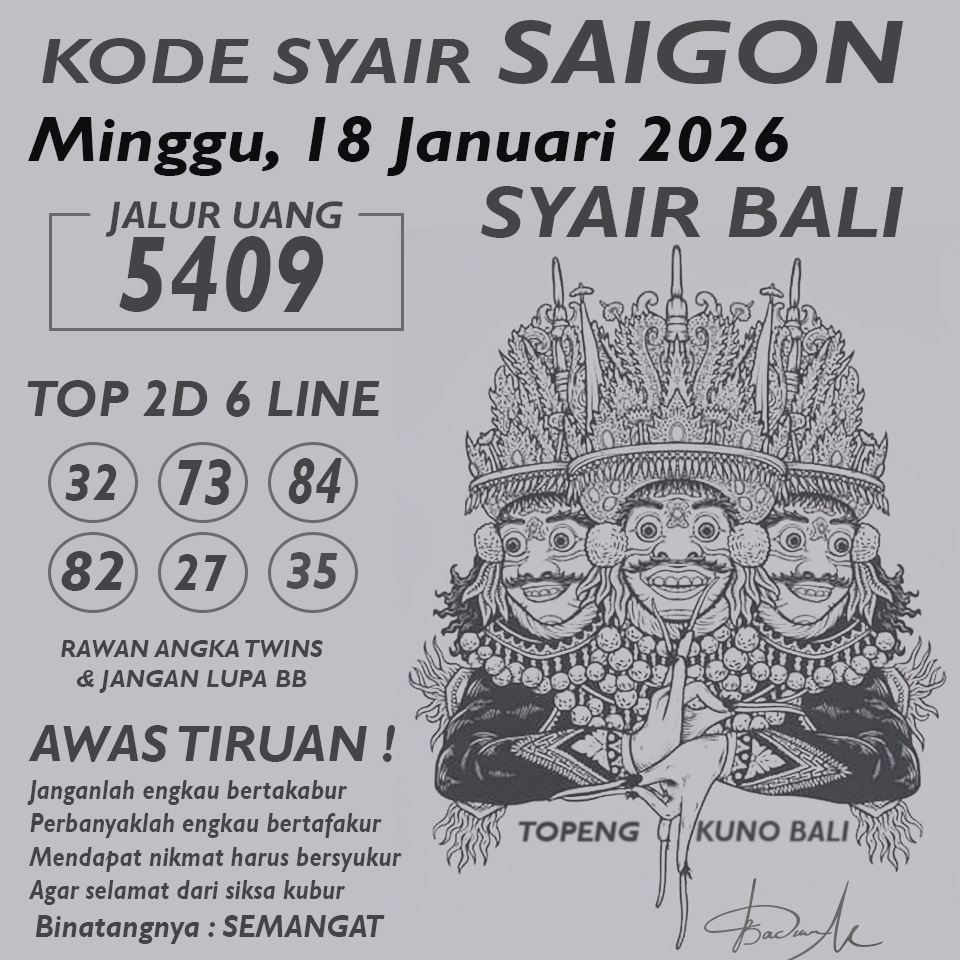 KODE SYAIR SAIGON
Minggu, 18 Januari 2026
SYAIR BALI
JALUR UANG
5409
TOP 2D 6 LINE
32 73 84
82 27 35
RAWAN ANGKA TWINS
& JANGAN LUPA BB
AWAS TIRUAN !
Janganlah engkau bertakabur
Perbanyaklah engkau bertafakur
Mendapat nikmat harus bersyukur
Agar selamat dari siksa kubur
Binatangnya : SEMANGAT
TOPENG KUNO BALI